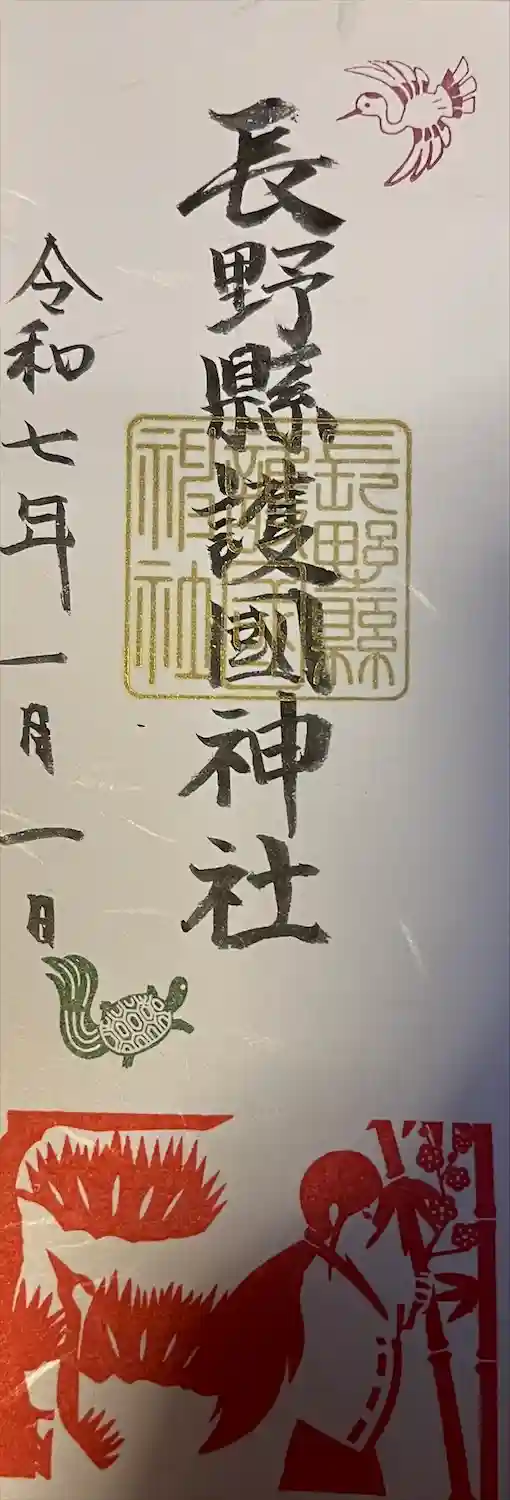 長野縣護國神社
長野縣
護國
神社
令和七年一月一日